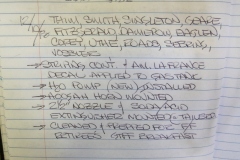 12/10/06 THIM, SMITH, SINGLETON, GEARE,
FITZGERALD, DAMERON, EASLEN,
COREY, UTHE, EOADS, SEBRING,
VOSBURG
→ STRIPING CONT. & AM. LAFRANCE
DECAL APPLIED TO GAS TANK
→ H2O PUMP (NEW) INSTALLED
→ AOOGAH HORN MOUNTED
→ 2½" NOZZLE & SODA/ACID
EXTINGUISHER MOUNTED
→ CLEANED & PREPPED FOR
RETIREES